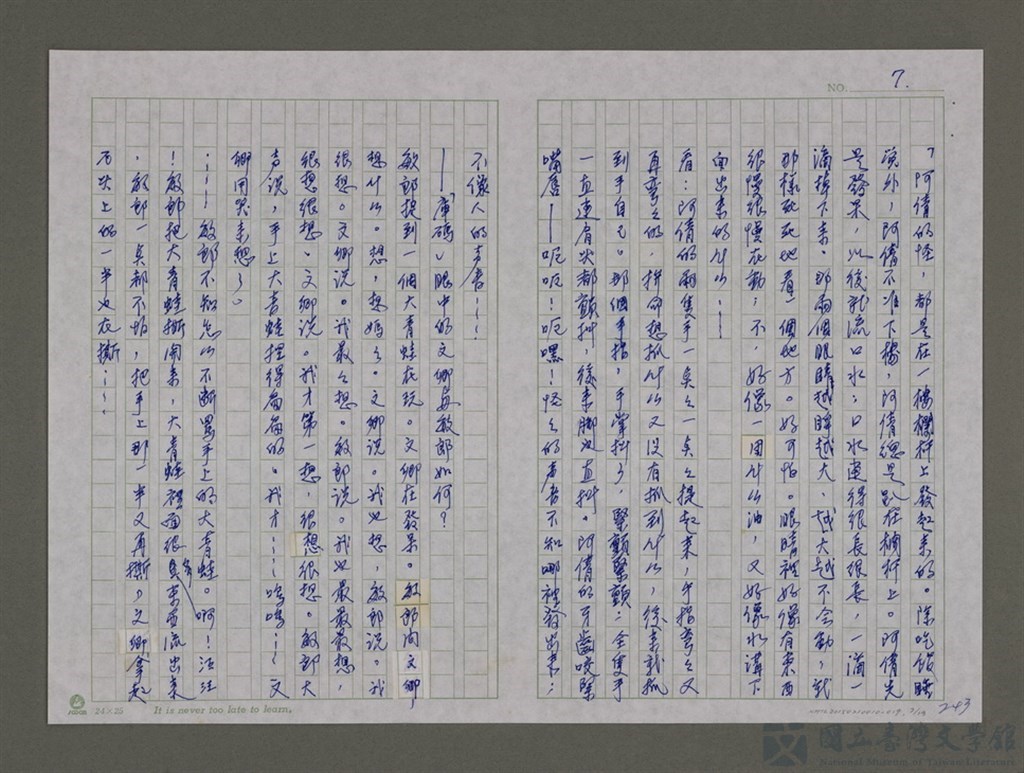 NO. 7.
「阿倩的怪,都是在一樓欄杆上發起來的。除吃飯睡
覺外,阿倩不准下樓,阿倩總是趴在欄杆上。阿倩先
是發呆,以後就流口水;口水連得很長很長,一滴一
滴掉下來。那兩個眼睛越睜越大、越大越不会動,就
那樣死死地看一個地方。好可怕。眼睛裡好像有東西
很慢很慢在動;不,好像一團什么油,又好像水溝下
面出來的什么……
看:阿倩的兩隻手一點點一點點提起來,手指彎彎又
再彎彎的,拼命想抓什么又沒有抓到什么,後來就抓
到手自己。那個手指,手掌抖了,緊顫緊顫;全隻手
一直連肩头都顫抖,後來脚也直抖。阿倩的牙齒咬
嘴唇——呃呃!呃嘿!怪怪的声音不知哪裡發出來;
不像人的声音……
——「庫碼」眼中的文卿与敏郎如何?
敏郎捉到一個大青蛙在玩。文卿在發呆。敏郎问文卿
想什么。想,想媽媽。文卿说。我也想,敏郎说。我
很想。文卿说。我最最想。敏郎说。我也最最最想,
很想很想。文卿说。我才第一想,很想很想。敏郎大
声说,手上大青蛙捏得扁扁的。我才……嗚嗚……文
卿用哭來想了。
……敏郎不知怎么不斷罵手上的大青蛙。啊!汪汪
!敏郎把大青蛙撕開來,大青蛙裡面很多東西流出來
,敏郎一点都不怕,把手上那一半又再撕,文卿拿起
石头上的一半也在撕……
24×25 It is never too late to learn.
243
國立臺灣文學館
National Museum of Taiwan Literature